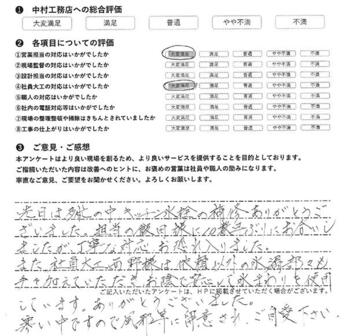 ❶ 中村工務店への総合評価
大変満足 満足 普通 やや不満 不満
❷ 各項目についての評価
①営業担当の対応はいかがでしたか 大変満足 満足 普通 やや不満 不満
②現場監督の対応はいかがでしたか 大変満足 満足 普通 やや不満 不満
③設計担当の対応はいかがでしたか 大変満足 満足 普通 やや不満 不満
④社員大工の対応はいかがでしたか 大変満足 満足 普通 やや不満 不満
⑤職人の対応はいかがでしたか 大変満足 満足 普通 やや不満 不満
⑥社内の電話対応等はいかがでしたか 大変満足 満足 普通 やや不満 不満
⑦現場の整理整頓や掃除はきちんとされていましたか 大変満足 満足 普通 やや不満 不満
⑧工事の仕上がりはいかがでしたか 大変満足 満足 普通 やや不満 不満
❸ ご意見・ご感想
本アンケートはより良い現場を創るため、より良いサービスを提供することを目的としております。
ご指摘いただいた内容は改善へのヒントに、お褒めの言葉は社員や職人の励みになります。
率直なご意見、ご要望をお聞かせください。よろしくお願いします。
先日は 中キッチン水栓の補修ありがとうご
ざいました。担当の 様に お会いし
ましたが 丁寧な対応 お疲れ入りました。
また社員大工 様は水栓以外の水漏部分も
手を加えていただき お陰さまで 使用
ご記入いただいたアンケートは、HPに掲載させていただく場合がございます。
しています。ありがとうございました。
寒い中ですので風邪等に留意され ご自愛下さい